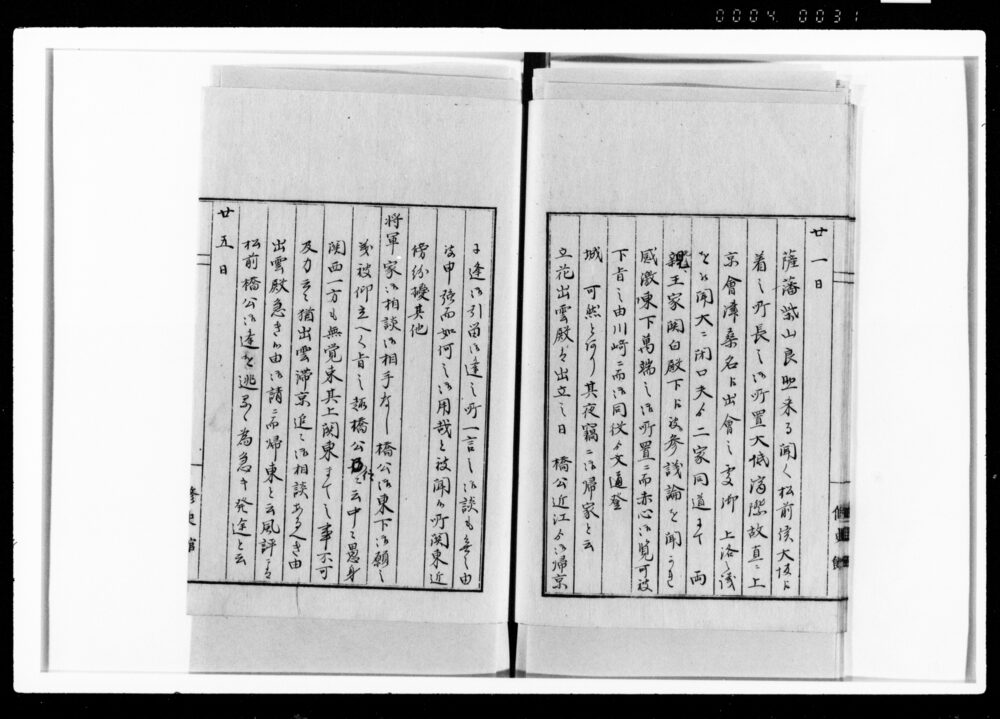 0004 0031
廿一日
薩藩柴山良助来る聞く松前侯大坂ニ
着之所長之御所置大低済際故直ニ上
京會津桑名ニ出會之処御 上洛之儀
を御聞大ニ閉口夫ゟ二家同道ニて 両
親王家関白殿下ニ被参議論を聞
感激東下萬端之御所置ニ而赤心御覧可被
下旨之由川崎ニ而御同役ゟ文通登
城 可然と何り其夜竊ニ御帰家と云
立花出雲殿も出立之日 橋公近江ゟ御帰京
ニ逢御引留御逢之所一言之御談も無之由
被申強而如何之御用哉と被聞候所関東近
傍紛擾其他
将軍家御相談御相手なし橋公御東下御願之
義被仰立へく旨之趣橋公 云中々愚身
関西一方も無覚束其上関東まて之事不可
及力云々猶出雲滞京追々御相談あるへき由
出雲殿急き候由御請ニ而帰東と云風評ニ
松前橋公御逢を逃 為急き発途と云
廿五日
修史館
修史館